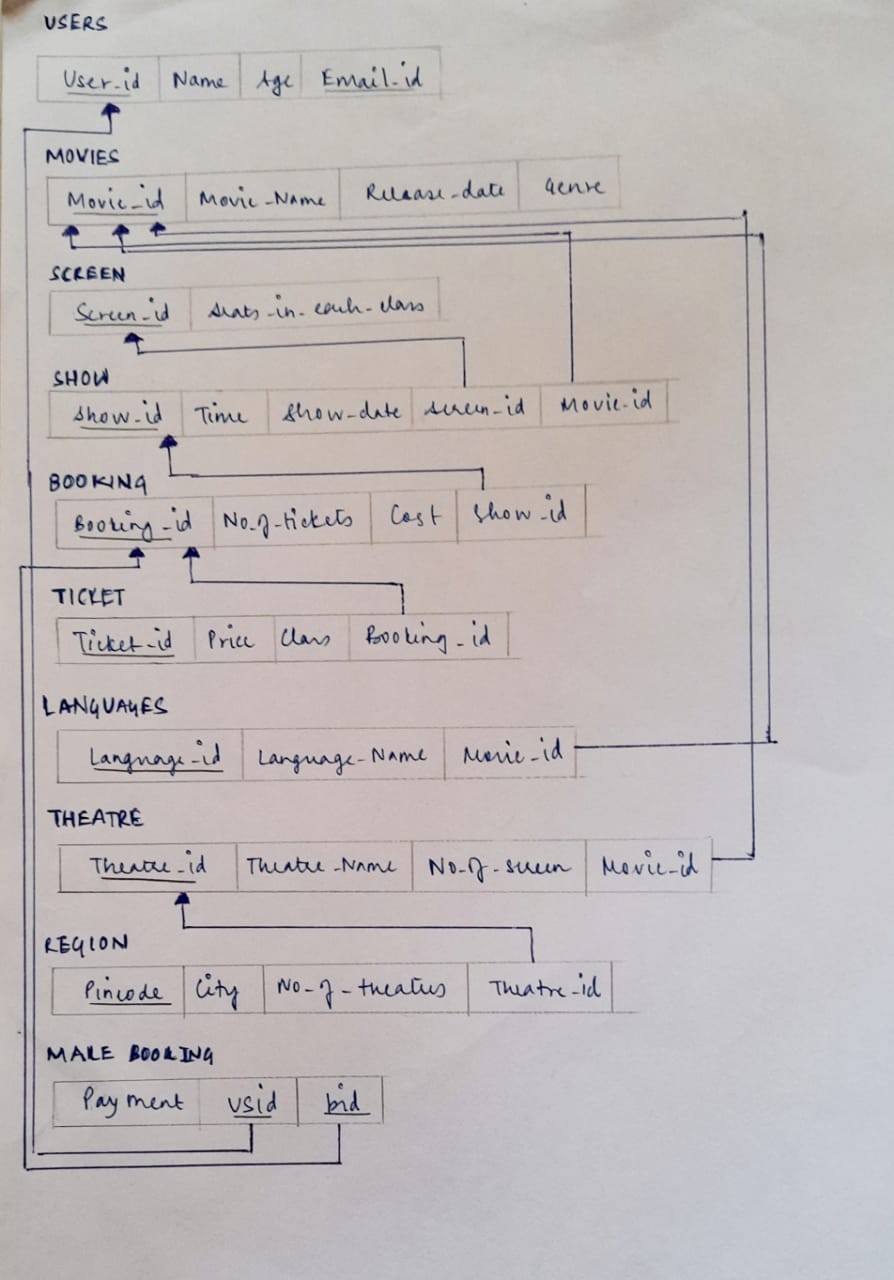 USERS
User_id Name Age Email_id
MOVIES
Movie_id Movie_Name Release_date Genre
SCREEN
Screen_id Seats_in_each_class
SHOW
Show_id Time Show_date Screen_id Movie_id
BOOKING
Booking_id No_of_tickets Cost Show_id
TICKET
Ticket_id Price Class Booking_id
LANGUAGES
Language_id Language_Name Movie_id
THEATRE
Theatre_id Theatre_Name No_of_screen Movie_id
REGION
Pincode City No_of_theatres Theatre_id
MAKE BOOKING
Payment usid bid